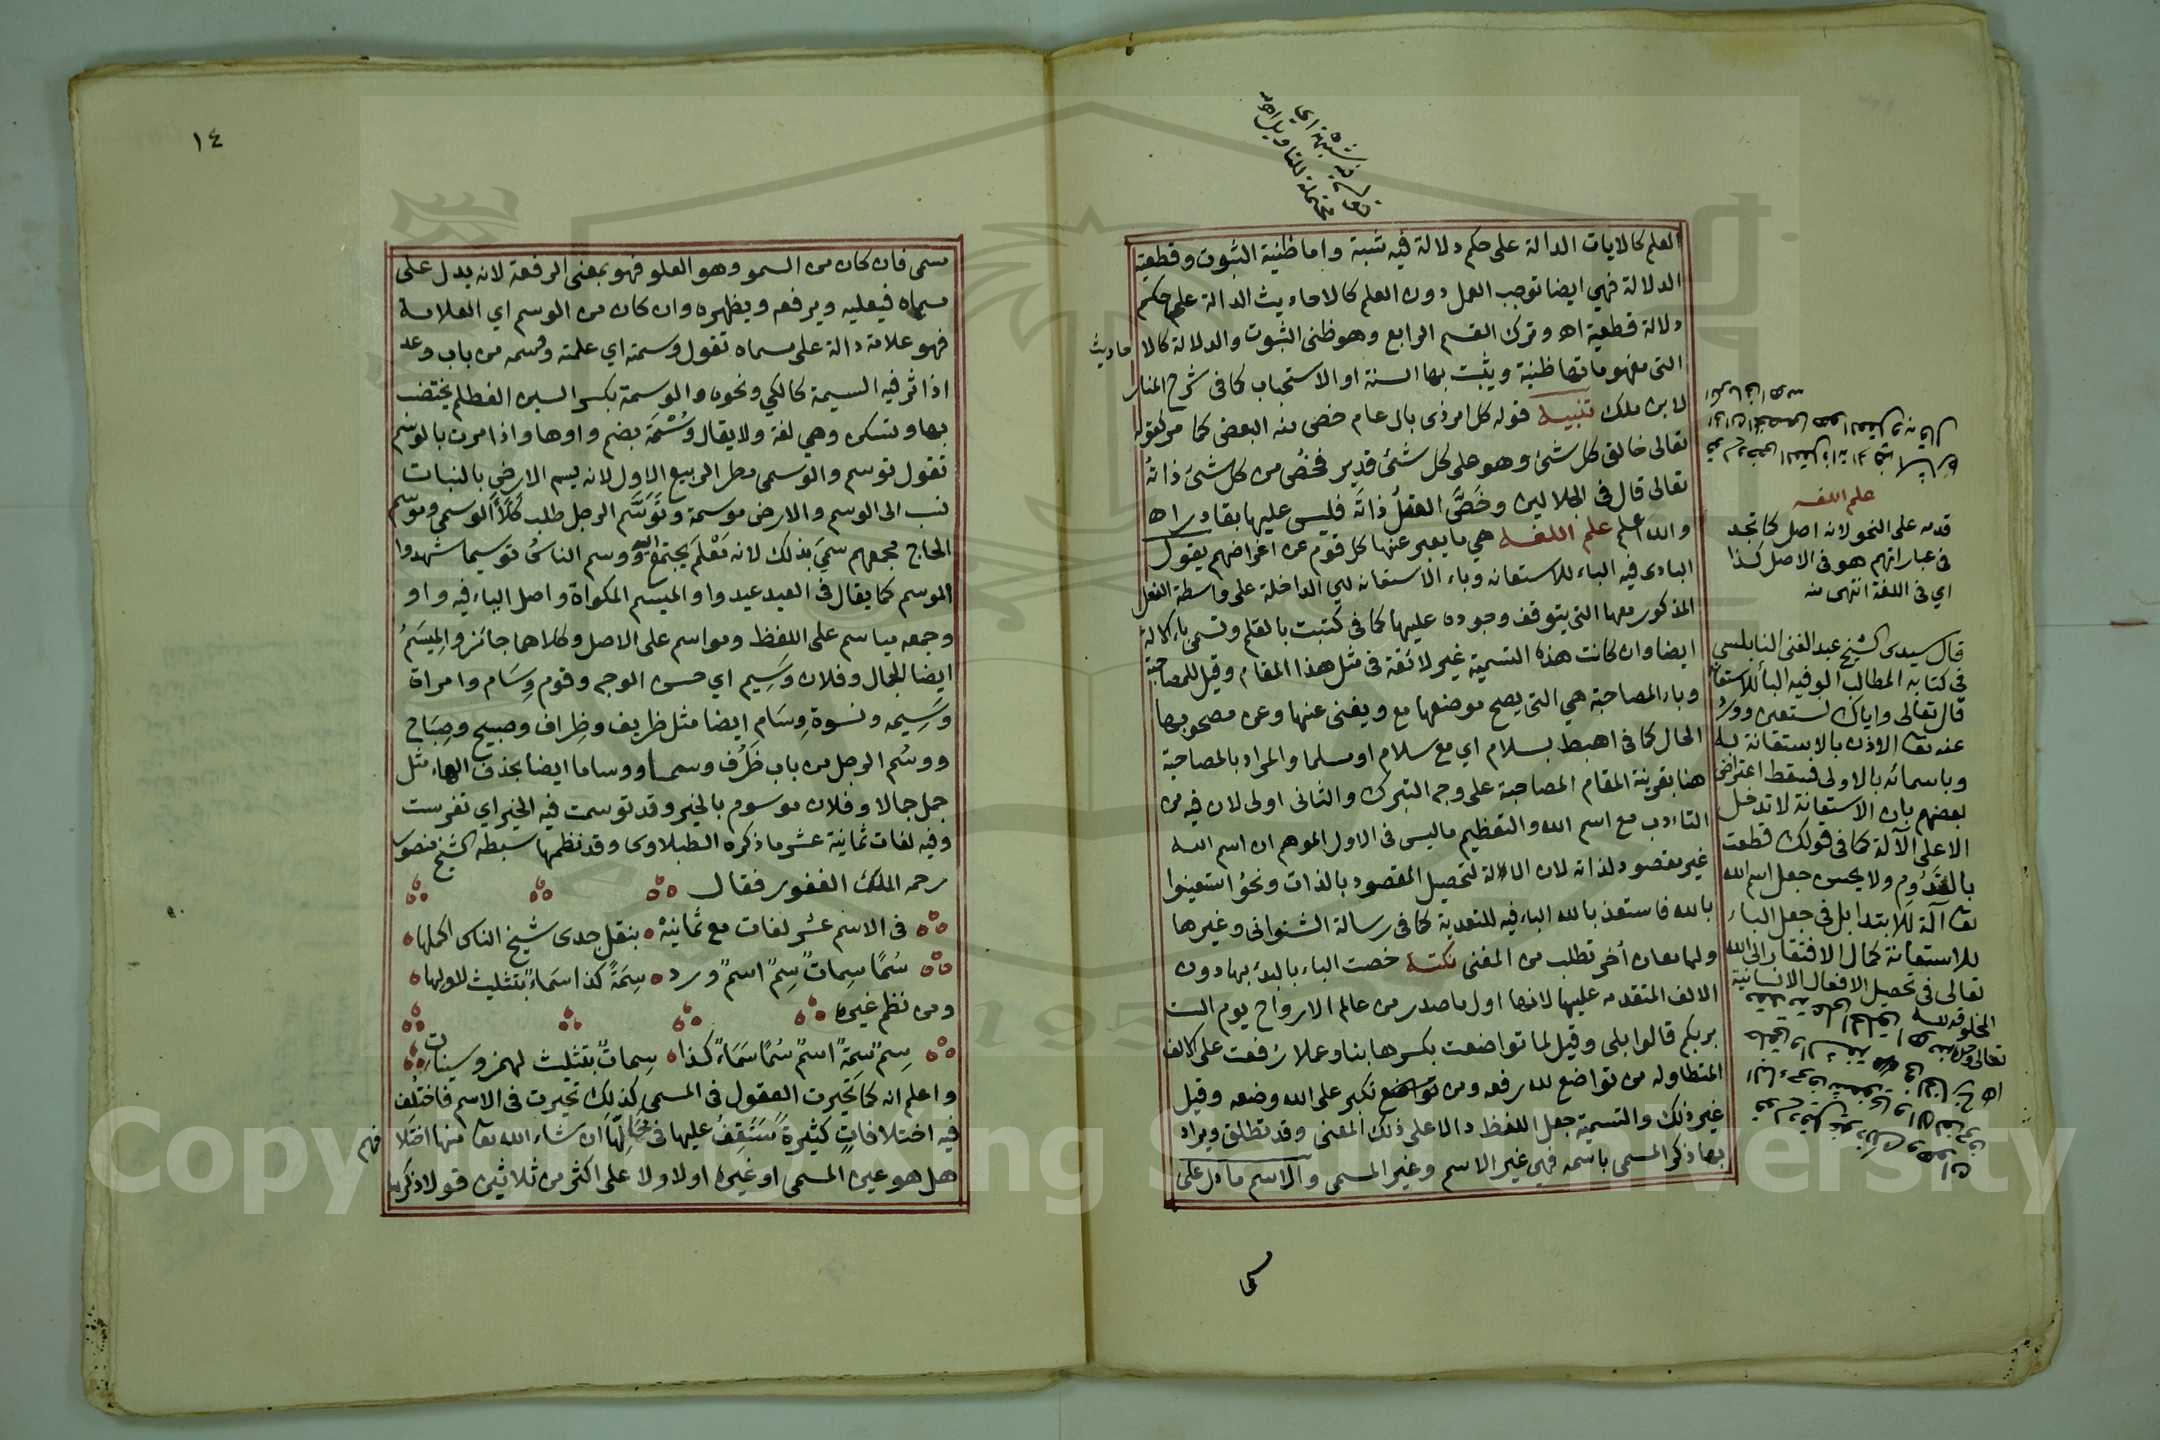 العلم كالايات الدالة على حكم دلالة فيه شبهة واما ظنية الثبوت وقطعية
الدلالة فهي ايضا توجب العمل دون العلم كالاحاديث الدالة على حكم
دلالة قطعية اه وترك القسم الرابع وهو ظني الثبوت والدلالة كالاحاديث
التي مفهوماتها ظنية ويثبت بها السنة او الاستحباب كما في شرح المنار
لابن ملك تنبيه قوله كل امر ذي بال عام خص منه البعض كما مر كقوله
تعالى خالق كل شئ وهو على كل شئ قدير فخص من كل شئ ذاته
تعالى قال في الجلالين وخصّ العقلُ ذاتَه فليس عليها بقادر اه
والله اعلم علم اللغة هي ما يعبر عنها كل قوم عن اغراضهم يقول
البادي فيه الباء للاستعانه وباء الاستعانه هي الداخلة على واسطة الفعل
المذكور معها التي يتوقف وجوده عليها كما في كتبت بالقلم وتسمى باء الالة
ايضا وان كانت هذه التسمية غير لائقة في مثل هذا المقام وقيل للمصاحبة
وباء المصاحبة هي التي يصح موضعها مع ويغنى عنها وعن مصحوبها
الحال كما في اهبط بسلام اي مع سلام او مسلما والمراد بالمصاحبة
هنا بقرينة المقام المصاحبة على وجه التبرك والثاني اولى لان فيه من
التادب مع اسم الله والتعظيم ما ليس في الاول الموهم ان اسم الله
غير مقصود لذاته لان الالة لتحصيل المقصود بالذات ونحو استعينوا
بالله فاستعذ بالله الباء فيه للتعدية كما في رسالة الشنواني وغيرها
ولها معان أخر تطلب من المغنى نكتة خصت الباء بالبدء بها دون
الالف المتقدمه عليها لانها اول ما صدر من عالم الارواح يوم الست
بربكم قالوا بلى وقيل لما تواضعت بكسرها بناء وعملا رفعت على الالف
المتطاوله من تواضع لله رفعه ومن تكبر على الله وضعه وقيل
غير ذلك والتسمية جعل اللفظ دالا على ذلك المعنى وقد تطلق ويراد
بها ذكر المسمى باسمه فهي غير الاسم وغير المسمى والاسم ما دل على
علم اللغه
قدمه على النحو لانه اصل كما تجد
في عباراتهم هو في الاصل كذا
اي في اللغة انتهى منه
قال سيدى الشيخ عبد الغني النابلسي
في كتابه المطالب الوفيه الباء للاستعانة
قال تعالى واياك نستعين وورد
عنه تعالى الاذن بالاستعانة به
وباسمائه بالاولى فسقط اعتراض
بعضهم بان الاستعانة لا تدخل
الا على الآلة كما في قولك قطعت
بالقَدُوم ولا يحسن جعل اسم الله
تعالى آلة للابتداء بل في جعل الباء
للاستعانة كمال الافتقار الى الله
تعالى في تحصيل الافعال الانسانية
المخلوقه لله
١٤
مسمى فان كان من السمو وهو العلو فهو بمعنى الرفعة لانه يدل على
مسماه فيعليه ويرفعه ويظهره وان كان من الوسم اي العلامة
فهو علامة دالة على مسماه تقول وسمته اي علمته وسمه من باب وعد
اذا اثر فيه السيمة كالكي ونحوه والوسمة بكسر السين العظلم يختضب
بها وتسكن وهي لغة ولا يقال وُسْمَة بضم واوها واذا امرت بالوسم
تقول توسم والوسمى مطر الربيع الاول لانه يسم الارض بالنبات
نسب الى الوسم والارض موسمة وتَوَسَّم الرجل طلب كلأ الوسمى وموسم
الحاج مجمعهم سمي بذلك لانه مَعْلَم يجتمع اليه ووسم الناسُ توسيما شهدوا
الموسم كما يقال في العيد عيدوا والميسم المكواة واصل الياء فيه واو
وجمعه مياسم على اللفظ ومواسم على الاصل وكلاهما جائز والمِيسَمُ
ايضا الجمال وفلان وَسِيم اي حسن الوجه وقوم وِسَام وامراة
وَسِيمه ونسوة وِسَام ايضا مثل ظريف وظِراف وصبيح وصِبَاح
ووسُم الرجل من باب ظَرُف وسما ووساما ايضا بحذف الهاء مثل
جمل جمالا وفلان موسوم بالخير وقد توسمت فيه الخير اي تفرست
وفيه لغات ثمانية عشر ما ذكره الطبلاوى وقد نظمها سبطه الشيخ منصور
رحمه الملك الغفور فقال
في الاسم عشر لغات مع ثمانية بنقل جدى شيخ الناس اكملها
سُمًا سِمات سِم اسم ورد سِمَةً كذا سَماء بتثليث لاولها
ومن نظم غيره
سِم سِمَة اسم سُمًا سَمَاء كذا سِماتٌ بتثليث لهمز وسينات
واعلم انه كما تحيرت العقول في المسمى كذلك تحيرت في الاسم فاختُلِف
فيه اختلافات كثيرة سَتَقِفُ عليها في محالِّها ان شاء الله تعالى منها اختلافهم
هل هو عين المسمى او غيره او لا ولا على اكثر من ثلاثين قولا ذكرها
Copyright © King Saud University
1957